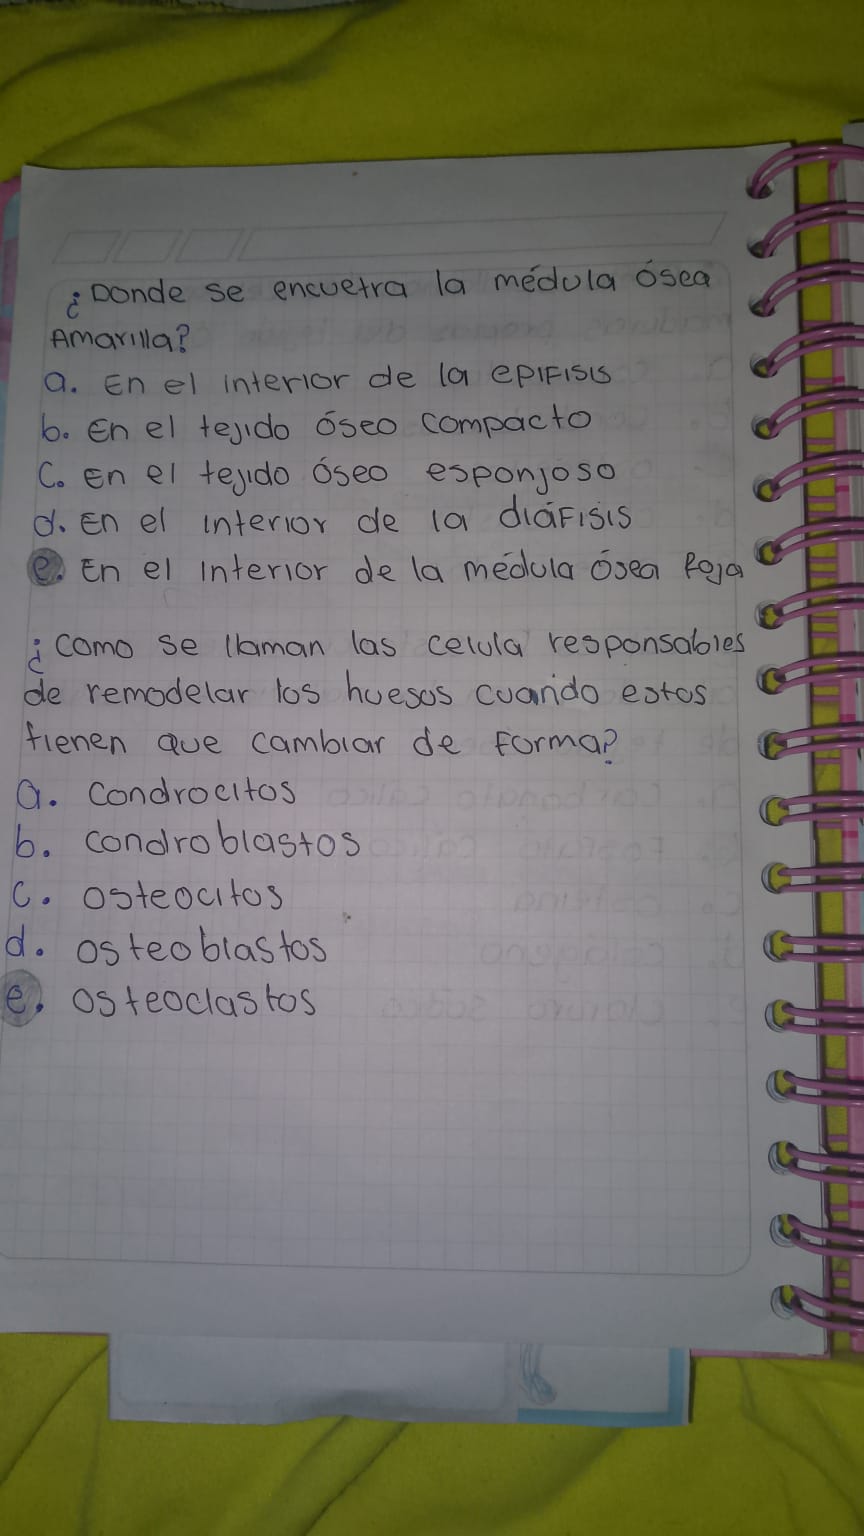 ¿Donde se encuetra la médula ósea
Amarilla?
a. En el interior de la epifisis
b. En el tejido óseo compacto
c. En el tejido óseo esponjoso
d. En el interior de la diáfisis
e. En el interior de la médula ósea Roja
¿Como se llaman las celula responsables
de remodelar los huesos cuando estos
tienen que cambiar de forma?
a. condrocitos
b. condroblastos
c. osteocitos
d. osteoblastos
e. osteoclastos